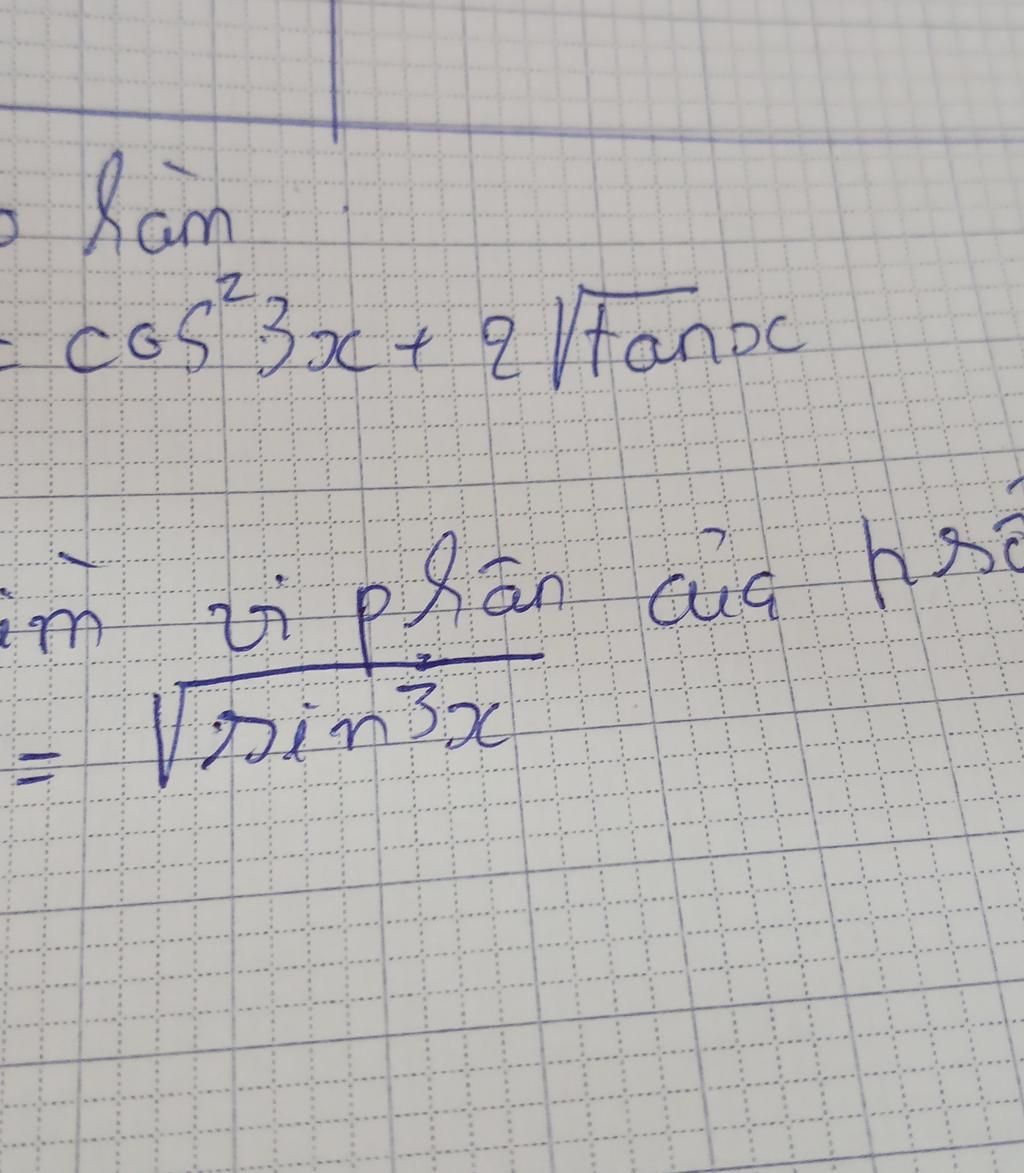 hàm
= cos²3x + 2√tanx
vi phân của hsố
= √sin3x